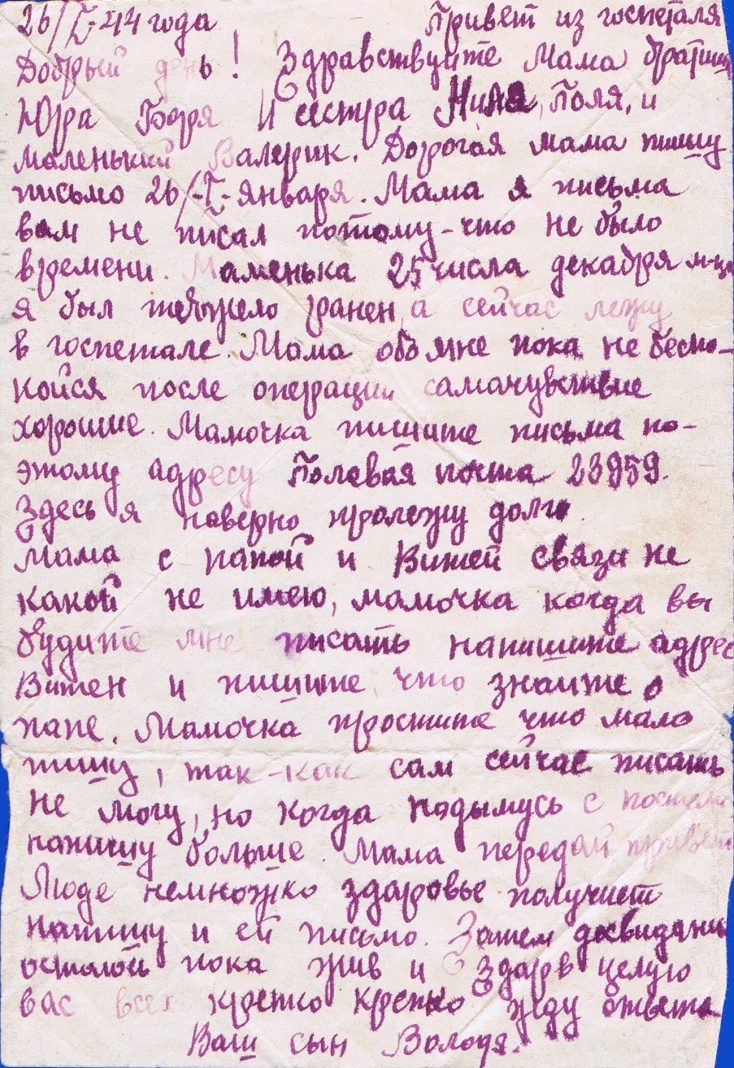 26/I-44 года Привет из госпеталя
Добрый день! Здравствуйте Мама братишки
Юра Боря и сестра Нина, Поля, и
маленький Валерик. Дорогая мама пишу
письмо 26/-I-января. Мама я письма
вам не писал потому-что не было
времени. Маменька 25 числа декабря м-ца
я был тяжело ранен, а сейчас лежу
в госпетале. Мама обо мне пока не беспо-
койся после операции самачувствие
хорошие. Мамочка пишите письма по-
этому адресу Полевая почта 23959.
Здесь я наверно пролежу долго
мама с папой и Витей связи не
какой не имею, мамочка когда вы
будите мне писать напишите адрес
Витен и пишите что знаите о
папе. Мамочка простите что мало
пишу, так-как сам сейчас писать
не могу, но когда подымусь с постели
напишу больше. Мама передай привет
Люде немножко здаровье получшет
напишу и ей письмо. Затем досвидания
остаюсь пока жив и здаров целую
вас всех крепко крепко жду ответа
Ваш сын Володя.